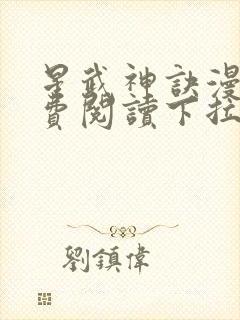 星武神訣漫
費閱讀下拉
劉鎮偉